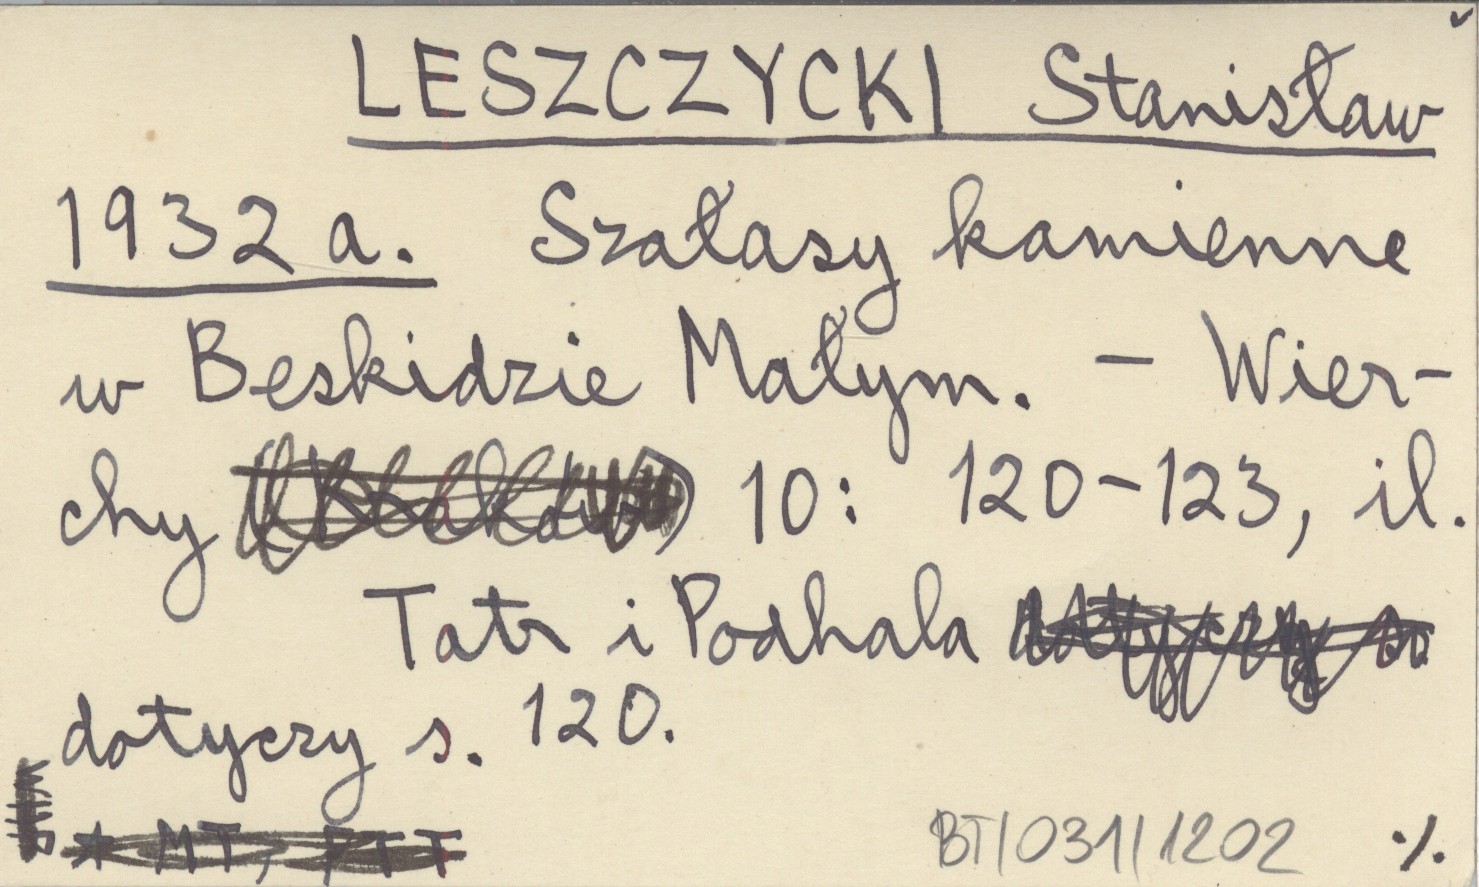 LESZCZYCKI Stanisław
1932 a. Szałasy kamienne
w Beskidzie Małym. — Wier-
chy 10: 120-123, il.
Tatr i Podhala
dotyczy s. 120.
* MT, PTT
BT/031/1202 ·/.